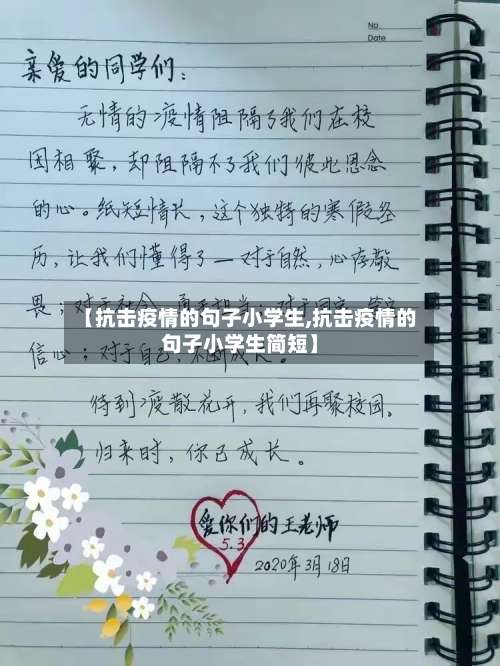 No.
Date
亲爱的同学们：
无情的疫情阻隔了我们在校
园相聚，却阻隔不了我们彼此思念
的心。纸短情长，这个独特的寒假经
历，让我们懂得了—对于自然，心存敬
畏；对于社会，勇于担当；对于国家，
【抗击疫情的句子小学生,抗击疫情的
句子小学生简短】
信心；对于自己，不断成长。
待到疫散花开，我们再聚校园。
归来时，你已成长。
爱你们的王老师
5.3
2020年3月18日